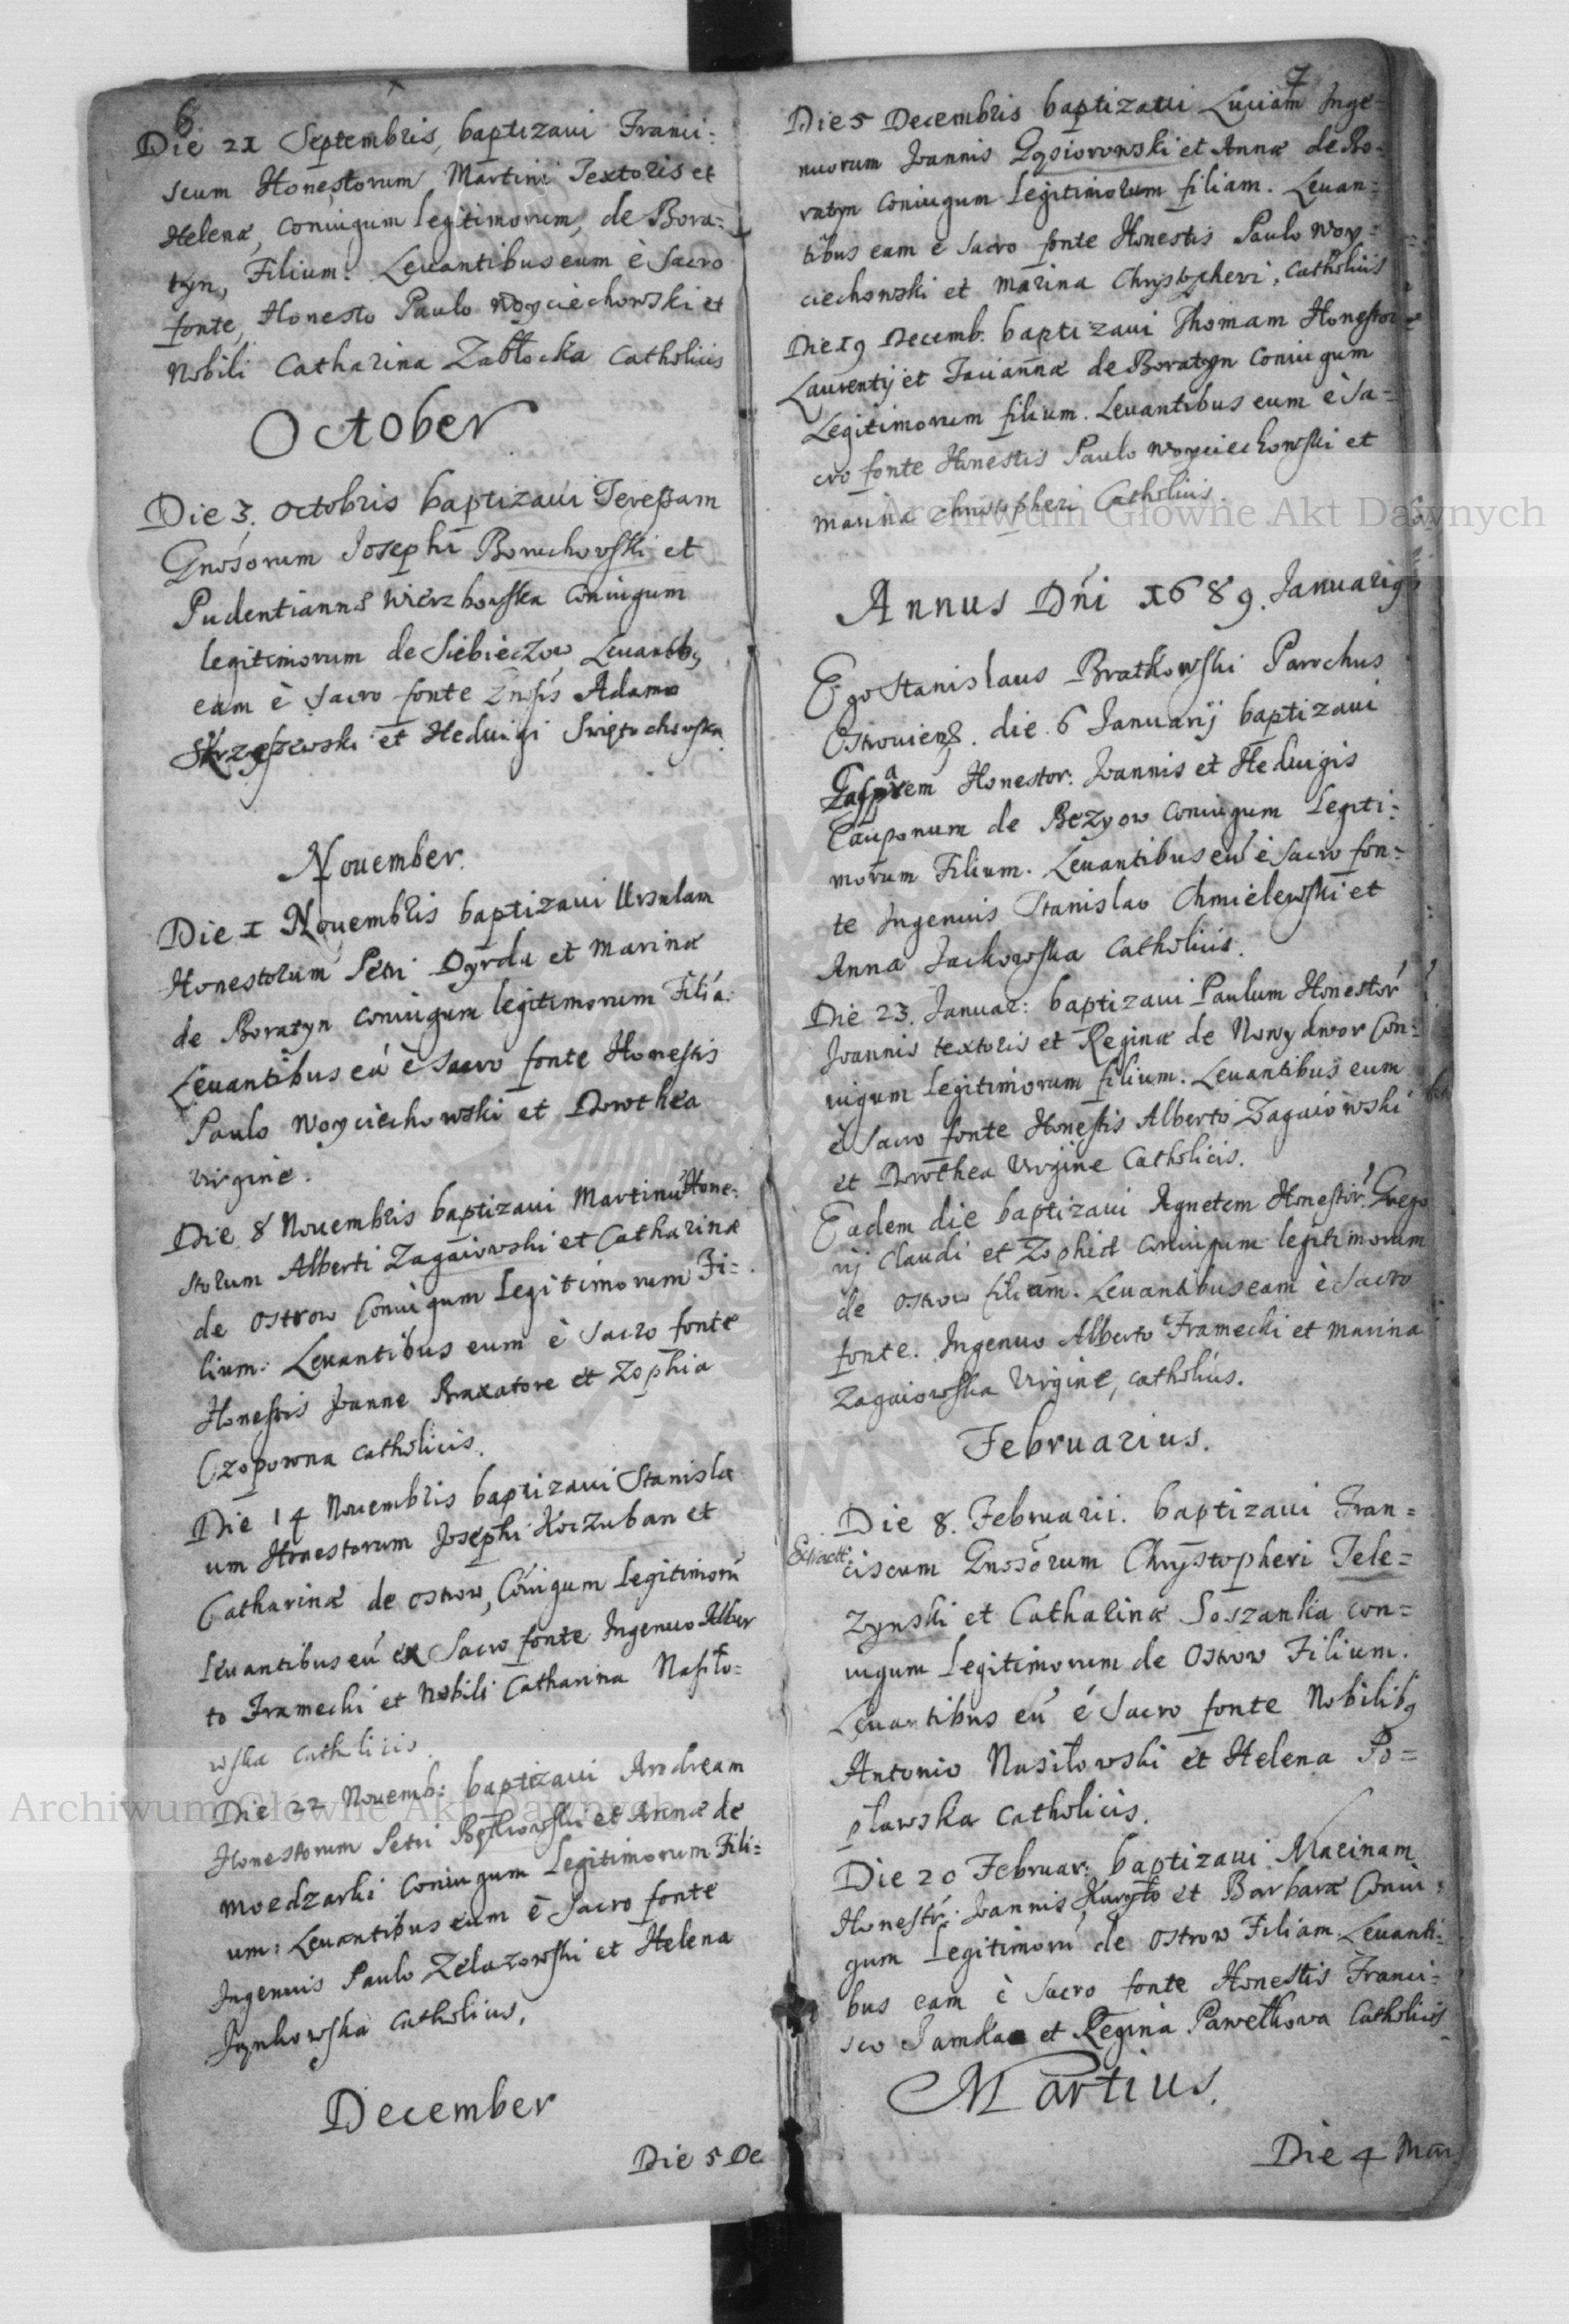 6.
Die 21 Septembris, baptizaui Franci:
scum Honestorum Martini Textoris et
Helenæ, coniugum legitimorum, de Bora:
tyn, Filium. Leuantibus eum è Sacro
fonte, Honesto Paulo Woyciechowski et
Nobili Catharina Zabłocka Catholicis
October
Die 3. Octobris baptizaui Teressam
Gnosorum Josephi Boruchowski et
Pudentiannæ Wierzbowska coniugum
legitimorum de Siebieczow Leuantib9
eam è Sacro fonte Gnosis Adamo
et Heduigi Swiętochowska
Nouember.
Die 1 Nouembris baptizaui Ursulam
Honestorum Petri Dyrda et Marinæ
de Boratyn coniugum legitimorum Filiá:
Leuantibus eá è Sacro fonte Honestis
Paulo Woyciechowski et Dorothea
virgine.
Die 8 Nouembris baptizaui Martinú Hone:
storum Alberti Zagaiowski et Catharinæ
de Ostrow Coniugum Legitimorum Fi=
lium. Leuantibus eum è Sacro fonte
Honestis Joanne Braxatore et Zophia
Czopowna catholicis.
Die 14 Nouembris baptizaui Stanisla
um Honestorum Josephi Koczuban et
Catharinæ de Ostrow, Cóiugum Legitimorú
Leuantibus eú ex Sacro fonte Ingenuo Alber
to Framecki et Nobili Catharina Nasiło=
wska catholicis.
Die 22 Nouemb: baptizaui Andream
Honestorum Petri et Annæ de
Moedzarki Coniugum Legitimorum Fili=
um: Leuantibus eum è Sacro fonte
Ingenuis Paulo Zelazowski et Helena
Catholicis.
December
Die 5 De
7
Die 5 Decembris baptizaui Luciam Inge=
nuorum Joannis Gąsiorowski et Annæ de Bo=
ratyn Coniugum Legitimorum filiam. Leuan=
tibus eam è Sacro fonte Honestis Paulo Woy=
ciechowski et Marina Chrystopheri, Catholicis
Die 19 Decemb. baptizaui Thomam Honestor
Laurentij et Jauiannæ de Boratyn Coniugum
Legitimorum filium. Leuantibus eum è Sa=
cro fonte Honestis Paulo Woyciechowski et
Marina Christopheri Catholicis.
Annus Dńi 1689. Januari9
Ego Stanislaus Bratkowski Parochus
Ostrouiens. die 6 Januarij baptizaui
Gasparem Honestor: Joannis et Heduigis
Cauponum de Bezyow Coniugum Legiti:
morum Filium. Leuantibus eú è Sacro fon:
te Ingenuis Stanislao Chmielewski et
Anna Jackowska Catholicis.
Die 23. Januar: baptizaui Paulum Honestor
Joannis textoris et Reginæ de Nowydwor Con:
iugum Legitimorum filium. Leuantibus eum
è Sacro fonte Honestis Alberto Zagaiowski
et Dorothea Virgine Catholicis.
Eadem die baptizaui Agnetem Honestor: Grego
rij Claudi et Zophiæ coniugum legitimorum
de Ostrow filiam. Leuantibus eam è Sacro
fonte. Ingenuo Alberto Framecki et Marina
Zagaiowska Virgine, catholicis.
Februarius.
Die 8. Februarii. baptizaui Fran=
ciscum Gnosorum Chrystopheri Tele=
zynski et Catharinæ Soszanka con=
iugum Legitimorum de Ostrow Filium.
Leuantibus eú é Sacro fonte Nobilib9
Antonio Nasiłowski et Helena Po=
pławska Catholicis.
Die 20 Februar: baptizaui Marinam
Honestr: Joannis Kuryło et Barbaræ Coniu:
gum Legitimorú de Ostrow Filiam Leuanti:
bus eam è Sacro fonte Honestis Franci=
sco et Regina Pawełkowa Catholicis
Martius.
Die 4 Mar
Archiwum Główne Akt Dawnych
Archiwum Główne Akt Dawnych